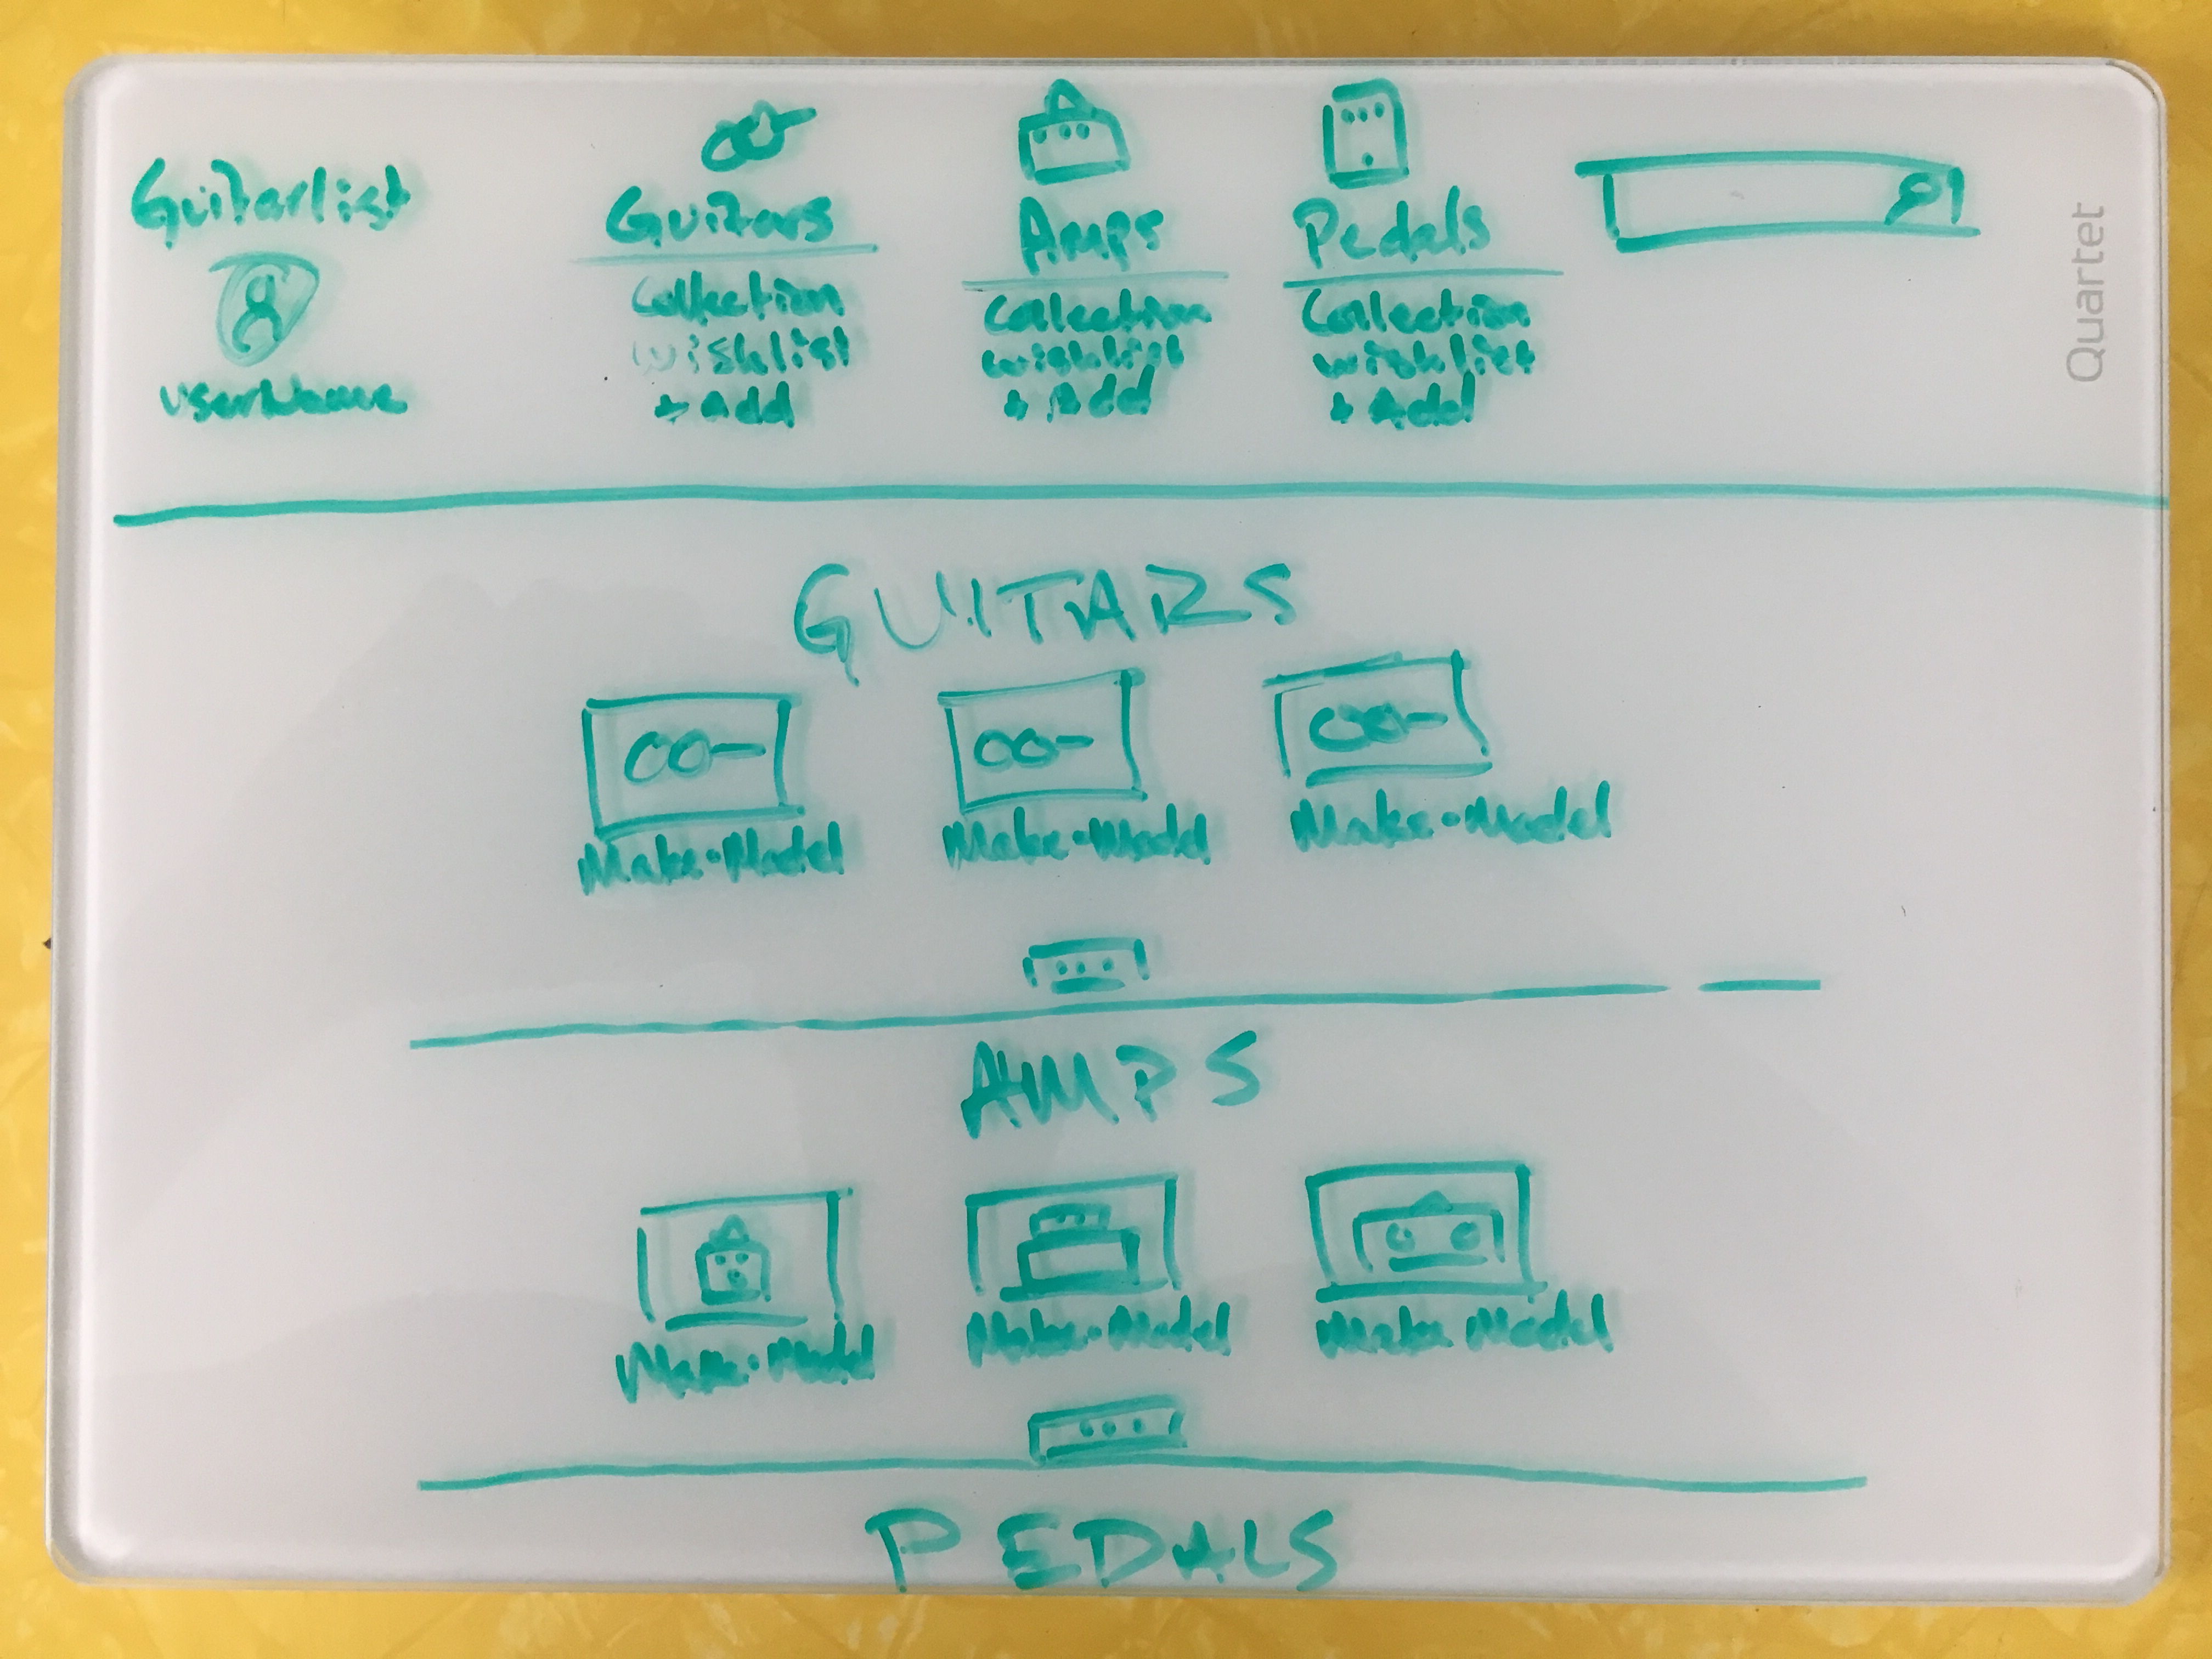 Guitarlist
userName
Guitars
Collection
wishlist
+ Add
Amps
Collection
wishlist
+ Add
Pedals
Collection
wishlist
+ Add
Quartet
GUITARS
Make•Model
Make•Model
Make•Model
...
AMPS
Make•Model
Make•Model
Make Model
...
PEDALS